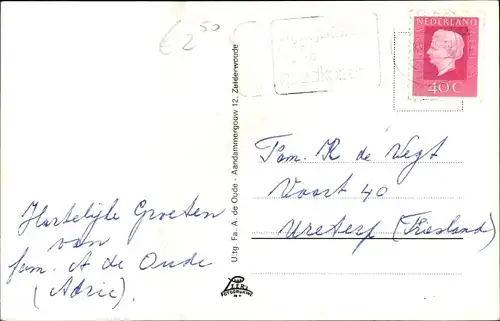 € 2,50
NEDERLAND
40 C
Fam. K de Vegt
Voort 40
Ureterp (Friesland)
Hartelijke Groeten
van
fam. A de Oude
(Adrie).
Uitg. Fa. A. de Oude - Aandammergouw 12, Zuiderwoude
FOTODRUKKERIJ